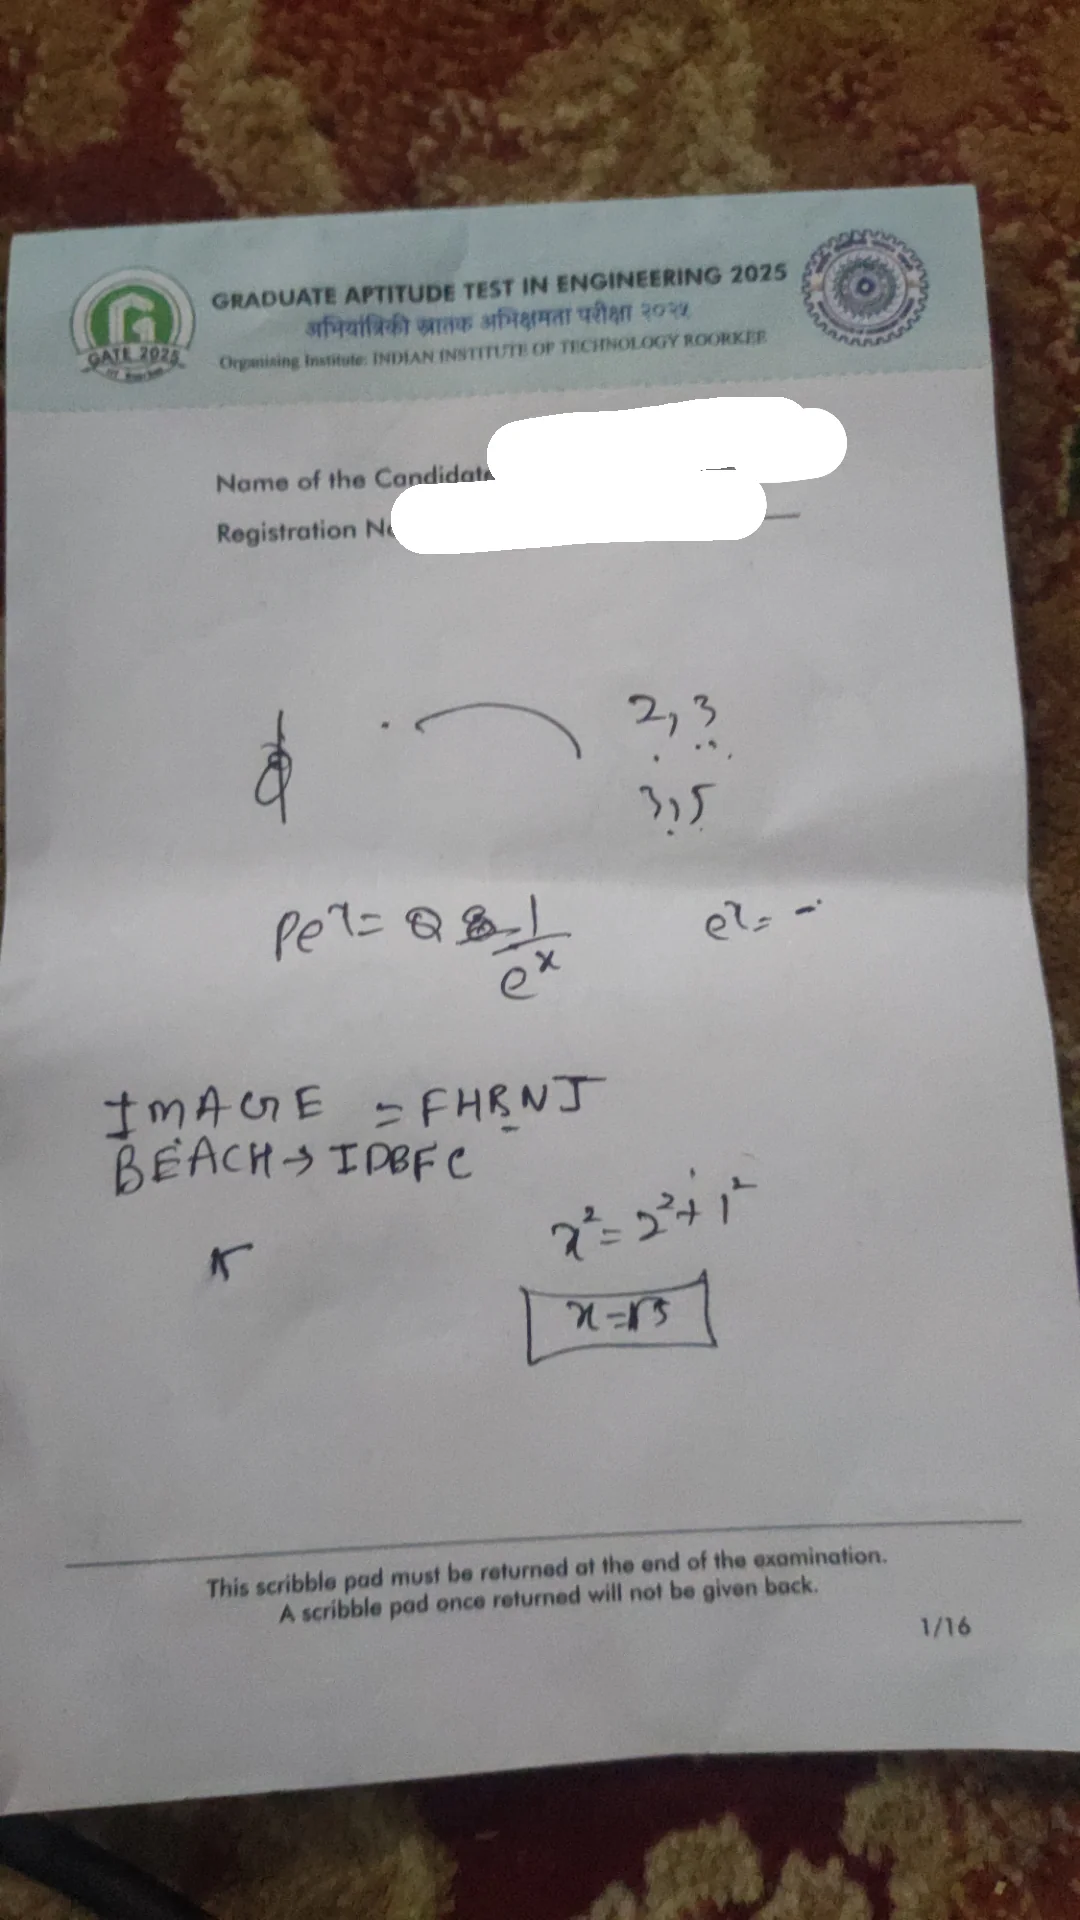 GRADUATE APTITUDE TEST IN ENGINEERING 2025
अभियांत्रिकी स्नातक अभिक्षमता परीक्षा २०२५
Organising Institute: INDIAN INSTITUTE OF TECHNOLOGY ROORKEE
GATE 2025
Name of the Candidate
Registration No
2, 3
3, 5
Pe^x = Q 1/e^x
e^x = -
IMAGE = FHBNJ
BEACH → IDBFC
x² = 2² + 1²
x = √5
This scribble pad must be returned at the end of the examination.
A scribble pad once returned will not be given back.
1/16